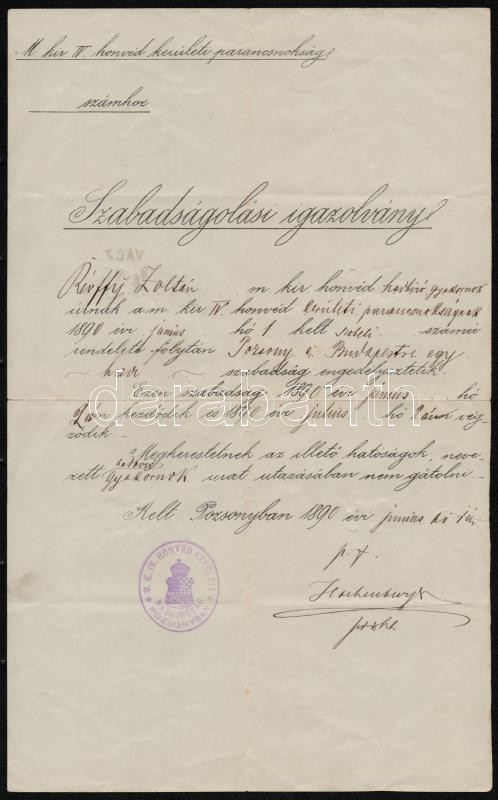 M. kir IV. honvéd kerületi parancsnokság
számhoz
Szabadságolási igazolvány
VÁCZ
Zoltán m. kir honvéd hadbiró gyakornok
úrnak a m. kir IV honvéd kerületi parancsnokságnak
1890 évi június hó 1 kelt számú
rendelete folytán Pozsony és Budapestre egy
havi szabadság engedélyeztetik.
Ezen szabadság 1890 évi június hó
2án kezdődik és 1890 évi július hó vég
ződik
Megkerestetnek az illető hatóságok, neve
hadbiró
zett Gyakornok urat utazásában nem gátolni
Kelt Pozsonyban 1890 évi június hó
p. f.
M. K. IV. HONVÉD KERÜLETI
POZSONYBAN
darabanth